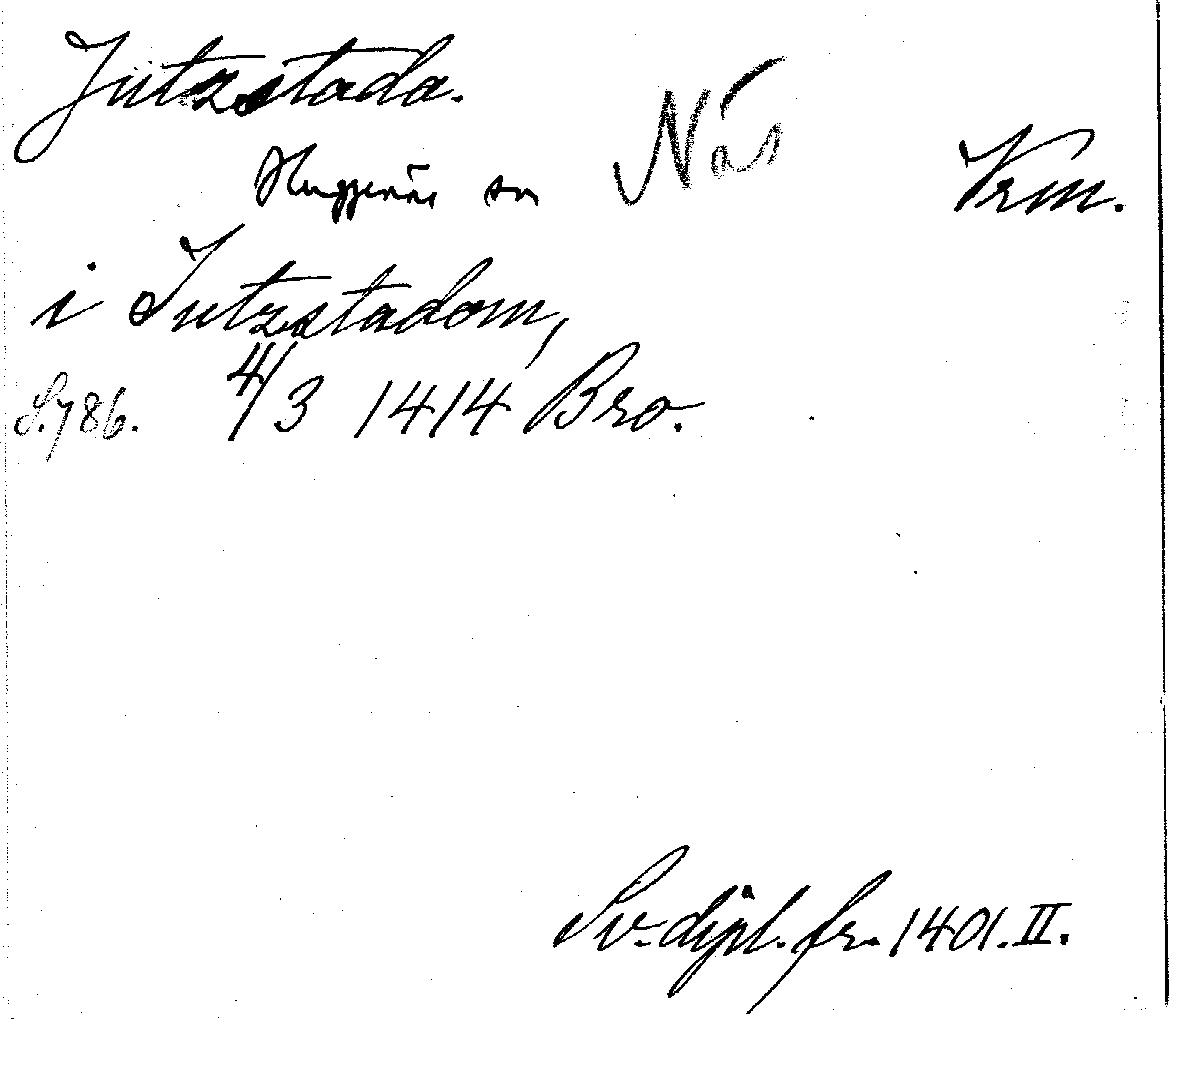 Jutzstada.
Huggenäs sn Näs Vrm.
i Jutzstadom,
S. 786. 4/3 1414 Bro.
Sv. dipl. fr. 1401. II.